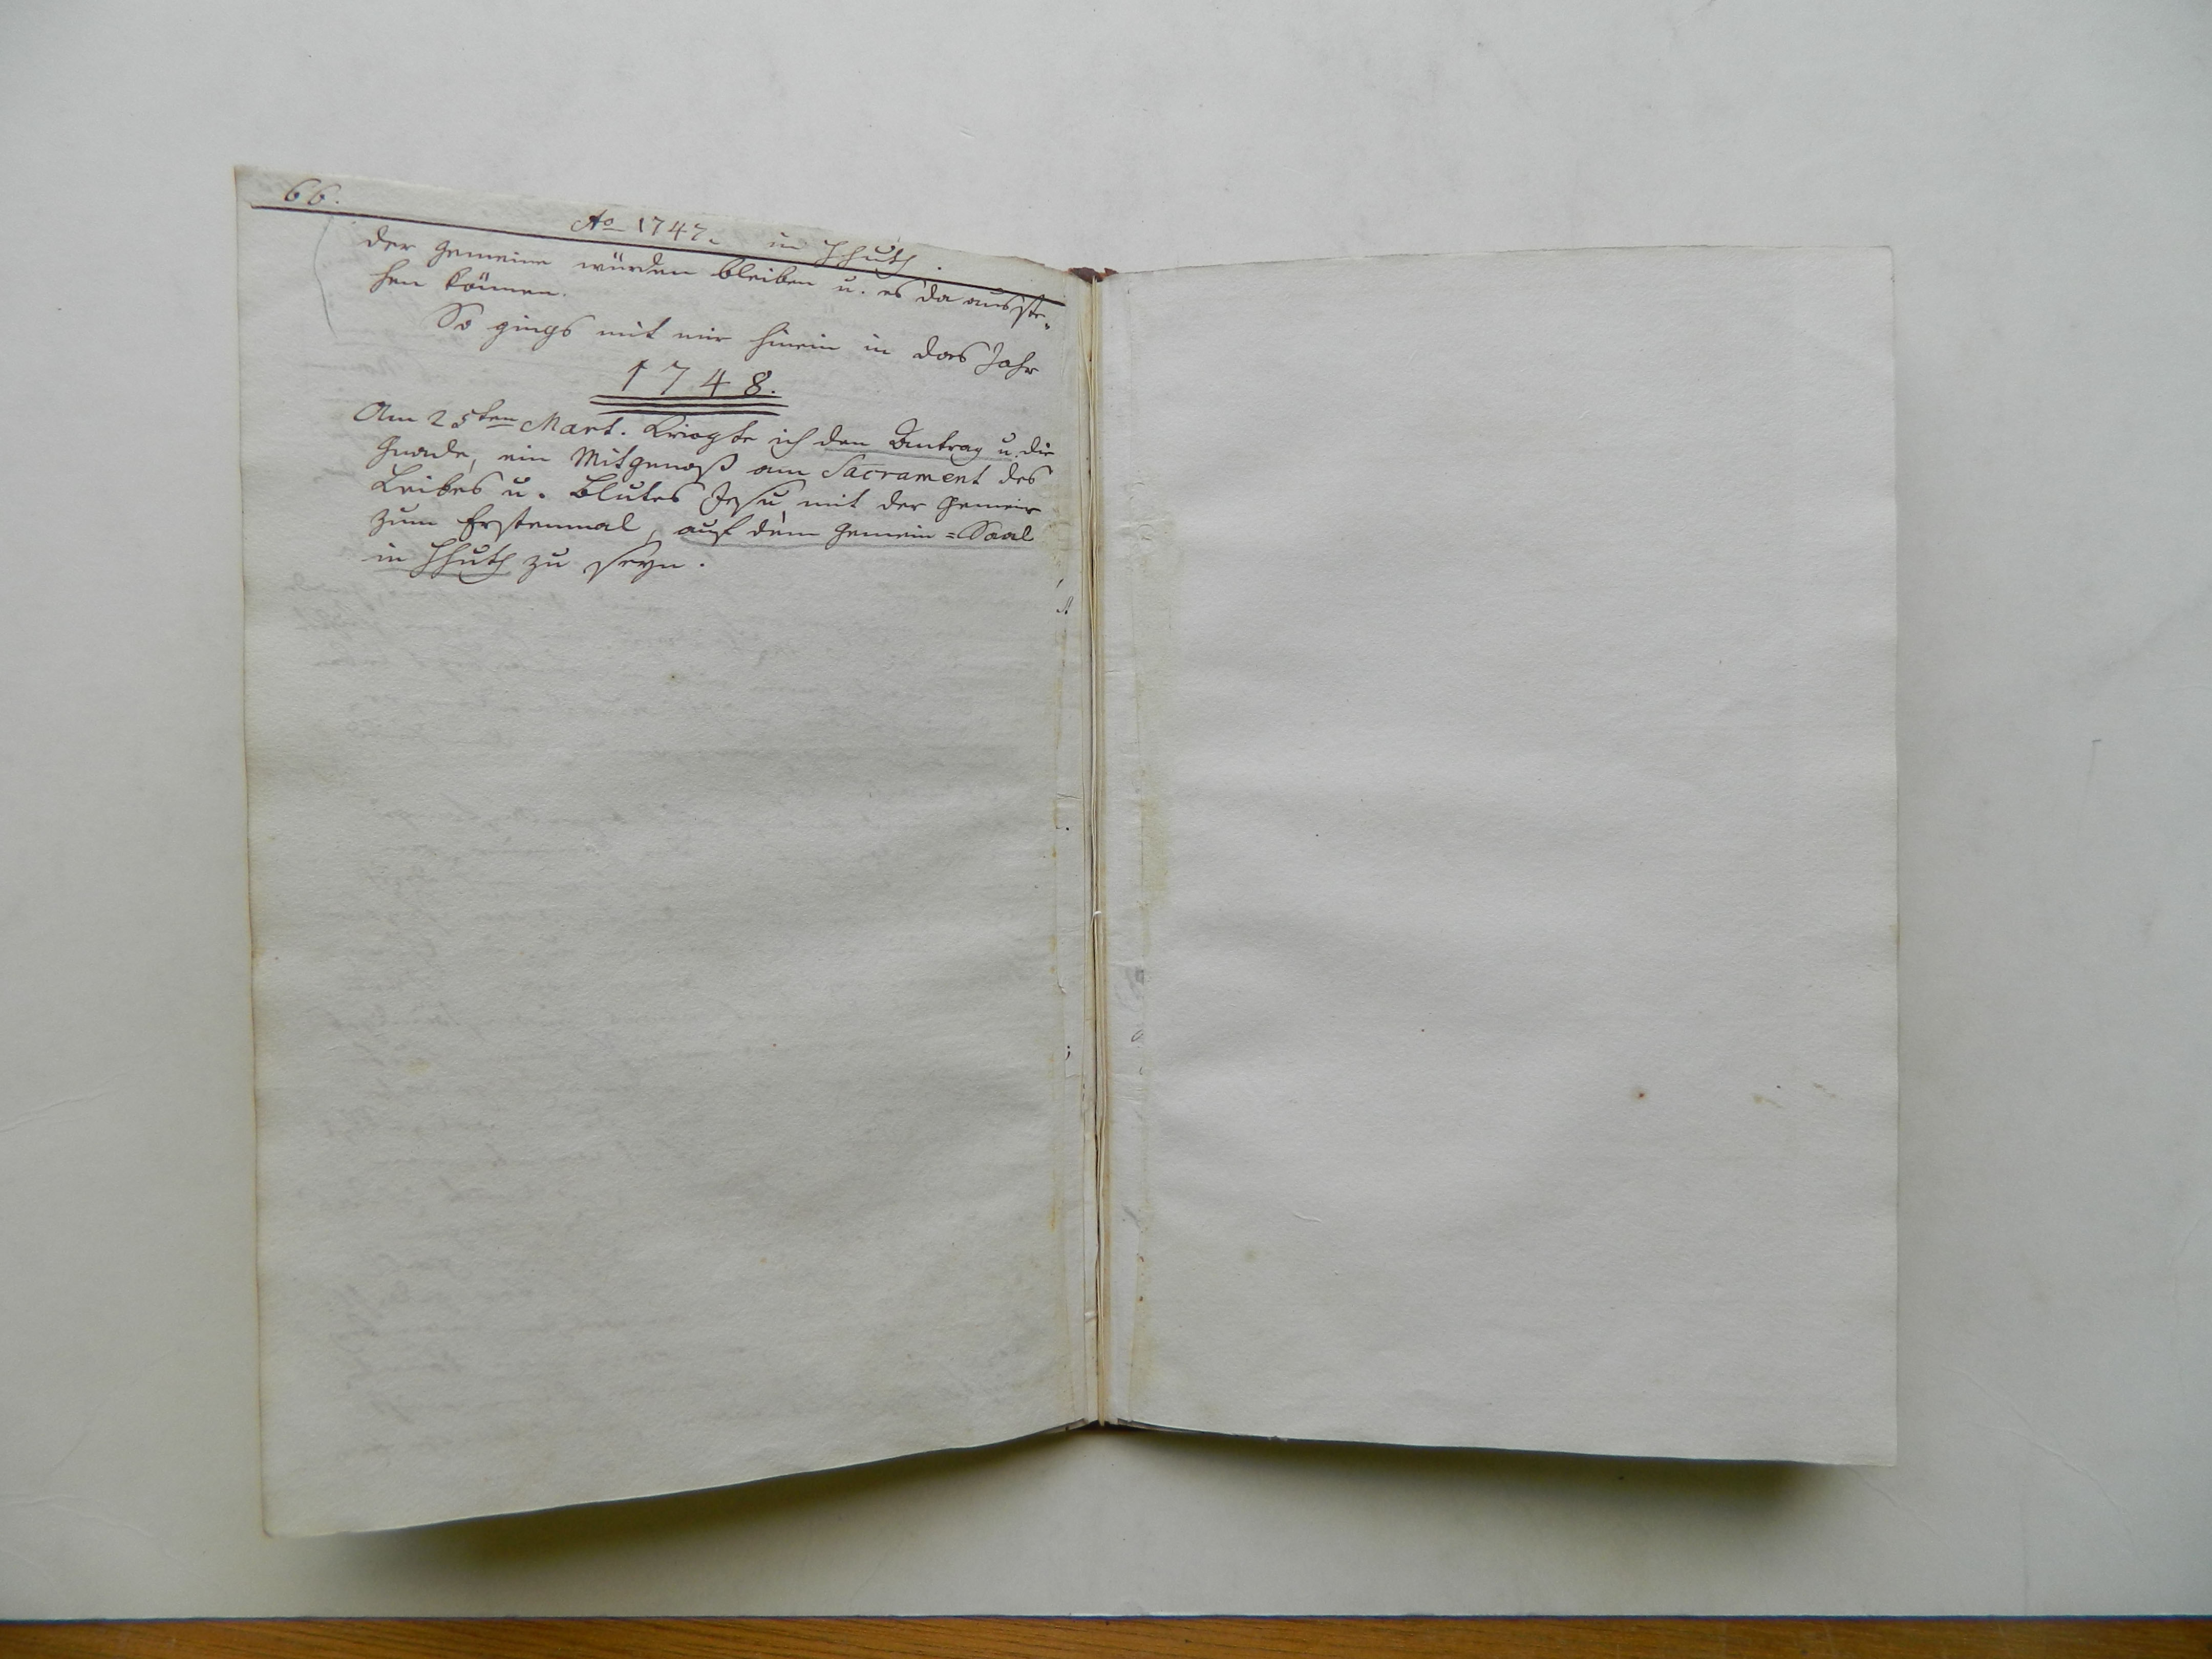 66.
Ao 1747. in Hhuth.
der gemeine würden bleiben u. es da ausste=
hen können.
So gings mit mir hinein in das Jahr
1748.
Am 25ten Mart. kriegte ich den Antrag u. die
Gnade, ein Mitgenoß am Sacrament des
Leibes u. Blutes Jesu, mit der Gemein
zum Erstenmal, auf dem Gemein=Saal
in Hhuth zu seyn.